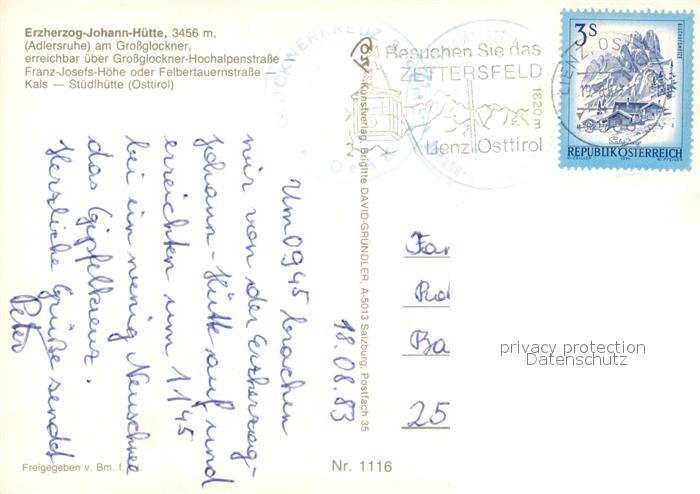 Erzherzog-Johann-Hütte, 3456 m,
(Adlersruhe) am Großglockner,
erreichbar über Großglockner-Hochalpenstraße —
Franz-Josefs-Höhe oder Felbertauernstraße —
Kals — Stüdlhütte (Osttirol)
Besuchen Sie das
ZETTERSFELD
1820 m
Lienz/Osttirol
LIENZ, OST
3 S
REPUBLIK ÖSTERREICH
18.08.83
Um 0945 brachen
wir von der Erzherzog-
Johann-Hütte auf und
erreichten um 1145
bei ein wenig Neuschnee
das Gipfelkreuz.
Herzliche Grüße sendet
Peter
Kunstverlag, Brigitte DAVID-GRÜNDLER, A-5013 Salzburg, Postfach 35
Fa
Ro
Ba
25
privacy protection
Datenschutz
Freigegeben v. Bm. f.
Nr. 1116